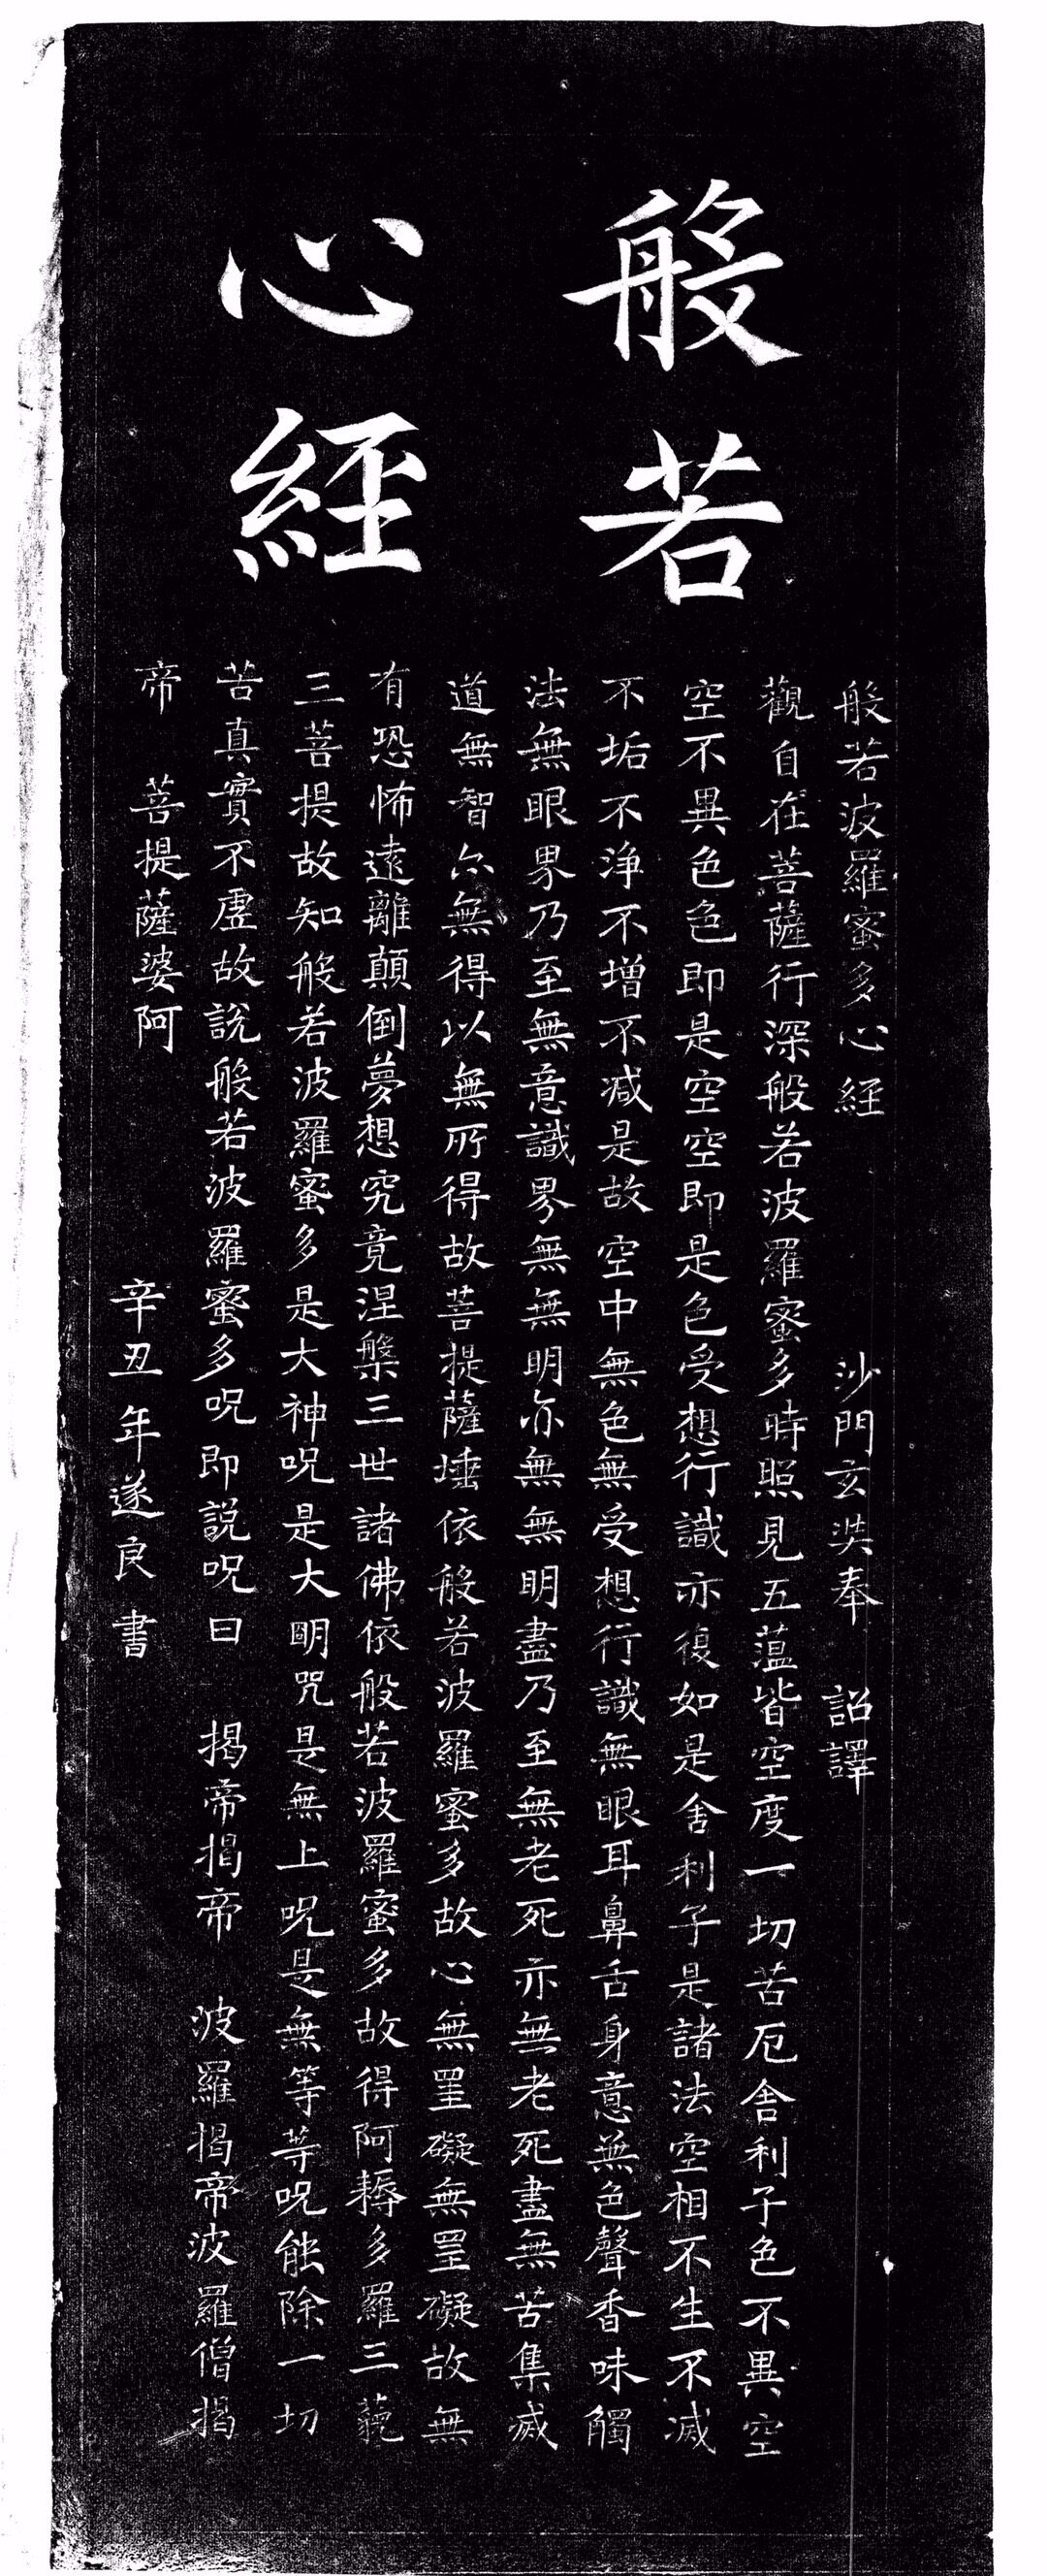 般若
心經
般若波羅蜜多心經 沙門玄奘奉 詔譯
觀自在菩薩行深般若波羅蜜多時照見五蕰皆空度一切苦厄舍利子色不異空
空不異色色即是空空即是色受想行識亦復如是舍利子是諸法空相不生不滅
不垢不淨不增不減是故空中無色無受想行識無眼耳鼻舌身意無色聲香味觸
法無眼界乃至無意識界無無明亦無無明盡乃至無老死亦無老死盡無苦集滅
道無智亦無得以無所得故菩提薩埵依般若波羅蜜多故心無罣礙無罣礙故無
有恐怖遠離顛倒夢想究竟涅槃三世諸佛依般若波羅蜜多故得阿耨多羅三藐
三菩提故知般若波羅蜜多是大神呪是大明咒是無上呪是無等等呪能除一切
苦真實不虛故說般若波羅蜜多呪即説呪曰 揭帝揭帝 波羅揭帝波羅僧揭
帝 菩提薩婆阿
辛丑年遂良書